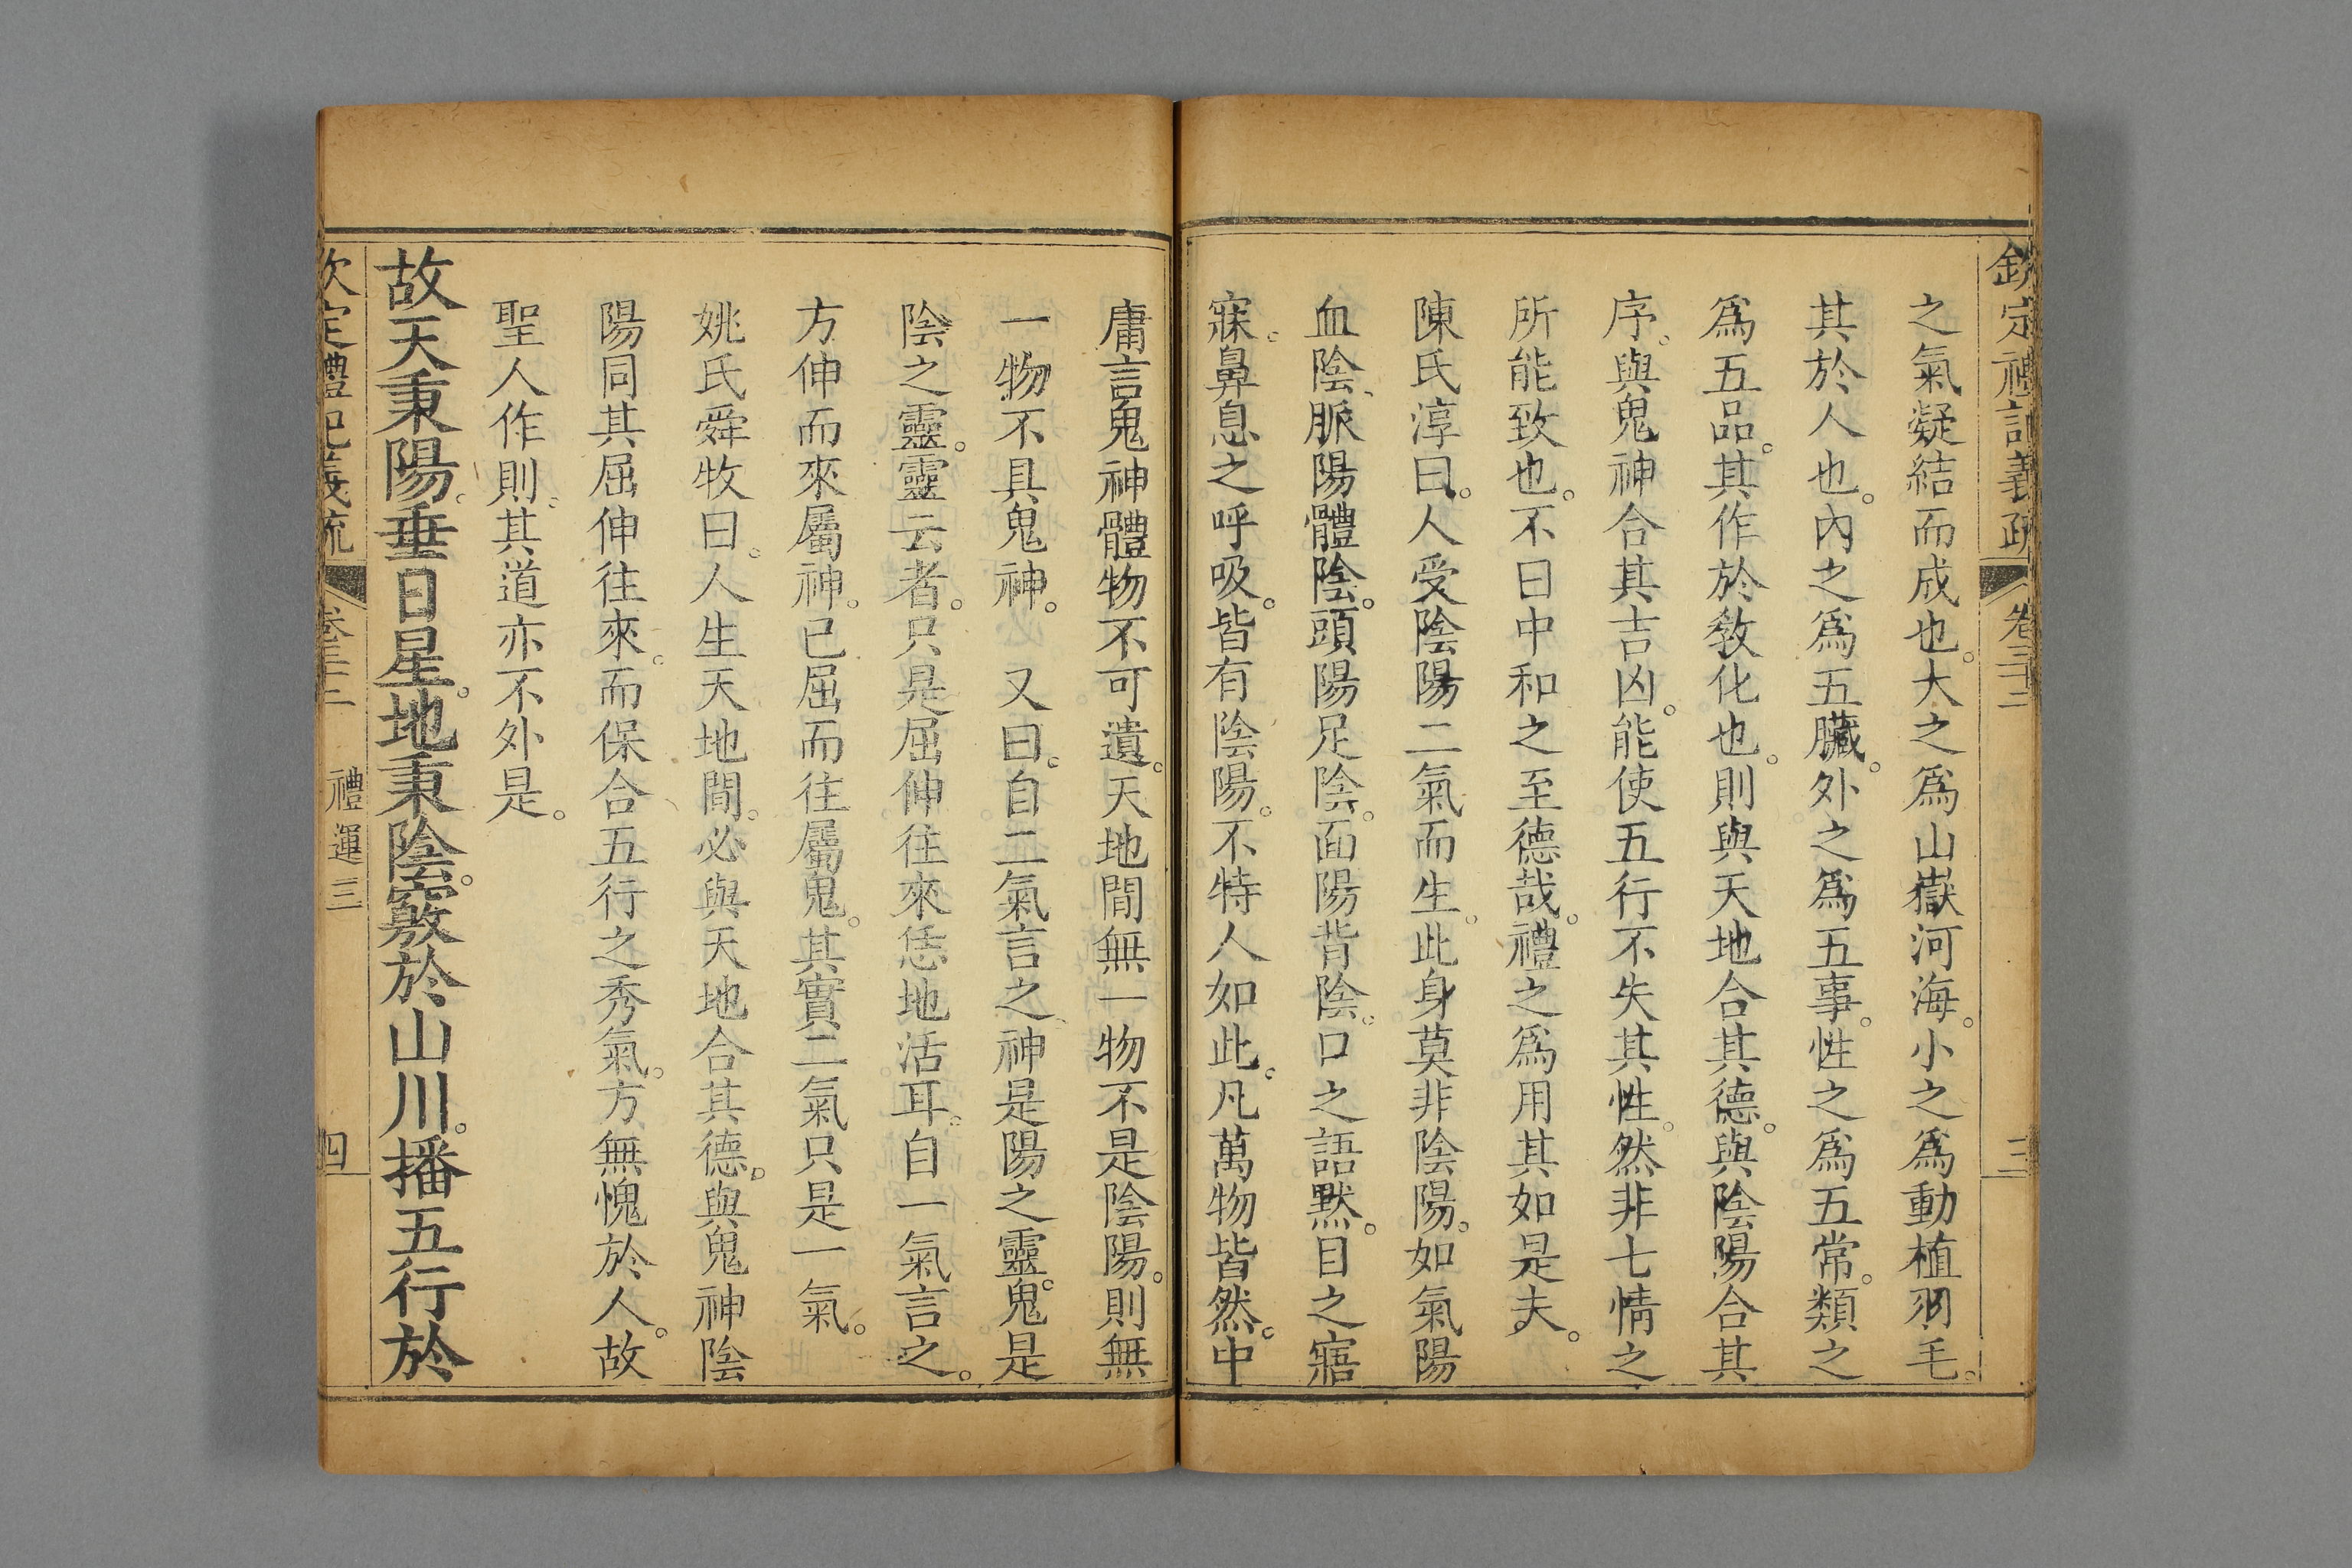 欽定禮記義疏 卷三十二 三
之氣凝結而成也。大之爲山嶽河海。小之爲動植羽毛。
其於人也。內之爲五臟。外之爲五事。性之爲五常。類之
爲五品。其作於敎化也。則與天地合其德。與陰陽合其
序。與鬼神合其吉凶。能使五行不失其性。然非七情之
所能致也。不曰中和之至德哉。禮之爲用其如是夫。
陳氏淳曰。人受陰陽二氣而生。此身莫非陰陽。如氣陽
血陰、脈陽體陰。頭陽足陰。面陽背陰。口之語默。目之寤
寐。鼻息之呼吸。皆有陰陽。不特人如此。凡萬物皆然。中
庸言鬼神體物不可遺。天地間無一物不是陰陽。則無
一物不具鬼神。 又曰。自二氣言之、神是陽之靈。鬼是
陰之靈。靈云者。只是屈伸往來恁地活耳。自一氣言之。
方伸而來屬神。已屈而往屬鬼。其實二氣只是一氣。
姚氏舜牧曰。人生天地間。必與天地合其德。與鬼神陰
陽同其屈伸往來。而保合五行之秀氣。方無愧於人。故
聖人作則、其道亦不外是。
故天秉陽。垂日星。地秉陰。竅於山川。播五行於
欽定禮記義疏 卷三十二 禮運三 四